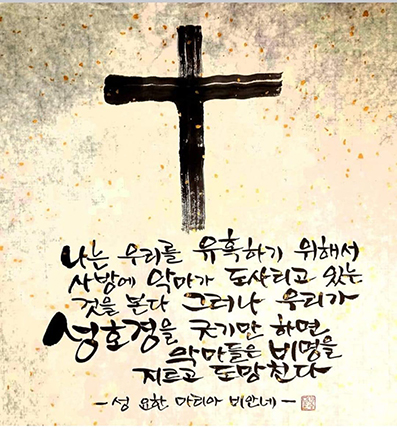 나는 우리를 유혹하기 위해서
사방에 악마가 도사리고 있는
것을 본다 그러나 우리가
성호경을 긋기만 하면
악마들은 비명을
지르고 도망친다
- 성 요한 마리아 비안네 -